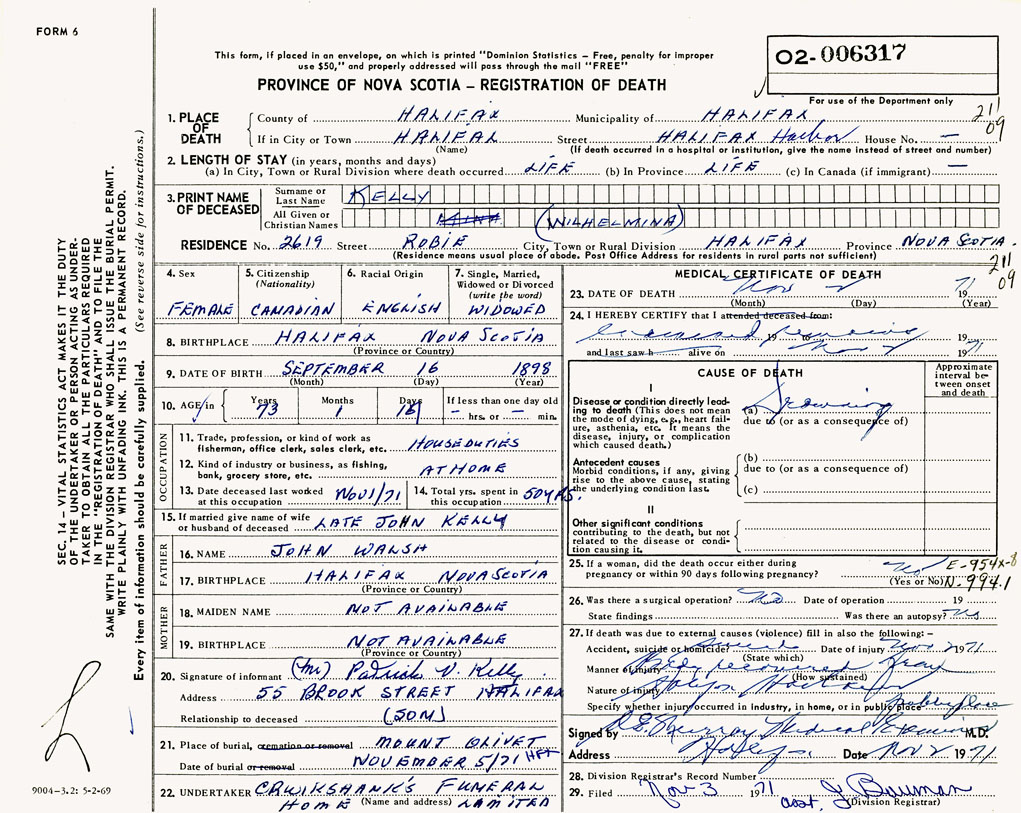 FORM 6
This form, if placed in an envelope, on which is printed "Dominion Statistics – Free, penalty for improper
use $50," and properly addressed will pass through the mail "FREE"
02-006317
PROVINCE OF NOVA SCOTIA – REGISTRATION OF DEATH
For use of the Department only
211
09
1. PLACE OF DEATH
County of HALIFAX Municipality of HALIFAX
If in City or Town HALIFAX Street HALIFAX Harbor House No. —
(Name) (If death occurred in a hospital or institution, give the name instead of street and number)
2. LENGTH OF STAY (in years, months and days)
(a) In City, Town or Rural Division where death occurred LIFE (b) In Province LIFE (c) In Canada (if immigrant) —
3. PRINT NAME OF DECEASED
Surname or Last Name KELLY
All Given or Christian Names MINA (WILHELMINA)
RESIDENCE No. 2619 Street ROBIE City, Town or Rural Division HALIFAX Province NOVA SCOTIA.
(Residence means usual place of abode. Post Office Address for residents in rural parts not sufficient)
211
09
4. Sex
FEMALE
5. Citizenship (Nationality)
CANADIAN
6. Racial Origin
ENGLISH
7. Single, Married, Widowed or Divorced (write the word)
WIDOWED
8. BIRTHPLACE HALIFAX NOVA SCOTIA
(Province or Country)
9. DATE OF BIRTH SEPTEMBER 16 1898
(Month) (Day) (Year)
10. AGE in Years 73 Months 1 Days 16 If less than one day old – hrs. or – min.
OCCUPATION
11. Trade, profession, or kind of work as
fisherman, office clerk, sales clerk, etc. HOUSEDUTIES
12. Kind of industry or business, as fishing,
bank, grocery store, etc. AT HOME
13. Date deceased last worked at this occupation NOV 1/71
14. Total yrs. spent in this occupation 50 YRS.
15. If married give name of wife
or husband of deceased LATE JOHN KELLY
FATHER
16. NAME JOHN WALSH
17. BIRTHPLACE HALIFAX NOVA SCOTIA
(Province or Country)
MOTHER
18. MAIDEN NAME NOT AVAILABLE
19. BIRTHPLACE NOT AVAILABLE
(Province or Country)
20. Signature of informant (Mr) Patrick V. Kelly
Address 55 BROOK STREET HALIFAX
Relationship to deceased (SON)
21. Place of burial, cremation or removal MOUNT OLIVET
Date of burial or removal NOVEMBER 5/71 HFX
22. UNDERTAKER CRUIKSHANK'S FUNERAL
HOME (Name and address) LIMITED
MEDICAL CERTIFICATE OF DEATH
23. DATE OF DEATH Nov 2 1971
(Month) (Day) (Year)
24. I HEREBY CERTIFY that I attended deceased from:
19 to 19
and last saw h alive on Nov 2 1971
CAUSE OF DEATH
Approximate interval between onset and death
I
Disease or condition directly leading
to death (This does not mean
the mode of dying, e.g., heart failure,
asthenia, etc. It means the
disease, injury, or complication
which caused death.)
(a) Drowning
due to (or as a consequence of)
Antecedent causes
Morbid conditions, if any, giving
rise to the above cause, stating
the underlying condition last.
(b)
due to (or as a consequence of)
(c)
II
Other significant conditions
contributing to the death, but not
related to the disease or condition
causing it.
25. If a woman, did the death occur either during
pregnancy or within 90 days following pregnancy? No
(Yes or No)
E-954X-8
N-994.1
26. Was there a surgical operation? No Date of operation 19
State findings Was there an autopsy?
27. If death was due to external causes (violence) fill in also the following: –
Accident, suicide or homicide? Date of injury Nov 2 1971
(State which)
Manner of injury Body recovered from
(How sustained)
Nature of injury Halifax Harbor
Specify whether injury occurred in industry, in home, or in public place public place
Signed by Murray Medical Examiner M.D.
Address Halifax Date Nov 2 1971
28. Division Registrar's Record Number
29. Filed Nov 3 1971 asst. J Bauman
(Division Registrar)
SEC. 14 – VITAL STATISTICS ACT MAKES IT THE DUTY
OF THE UNDERTAKER OR PERSON ACTING AS UNDERTAKER
TO OBTAIN ALL THE PARTICULARS REQUIRED
IN THE "REGISTRATION OF DEATH" AND TO FILE THE
SAME WITH THE DIVISION REGISTRAR WHO SHALL ISSUE THE BURIAL PERMIT.
WRITE PLAINLY WITH UNFADING INK. THIS IS A PERMANENT RECORD.
Every item of information should be carefully supplied. (See reverse side for instructions.)
9004–3.2: 5-2-69